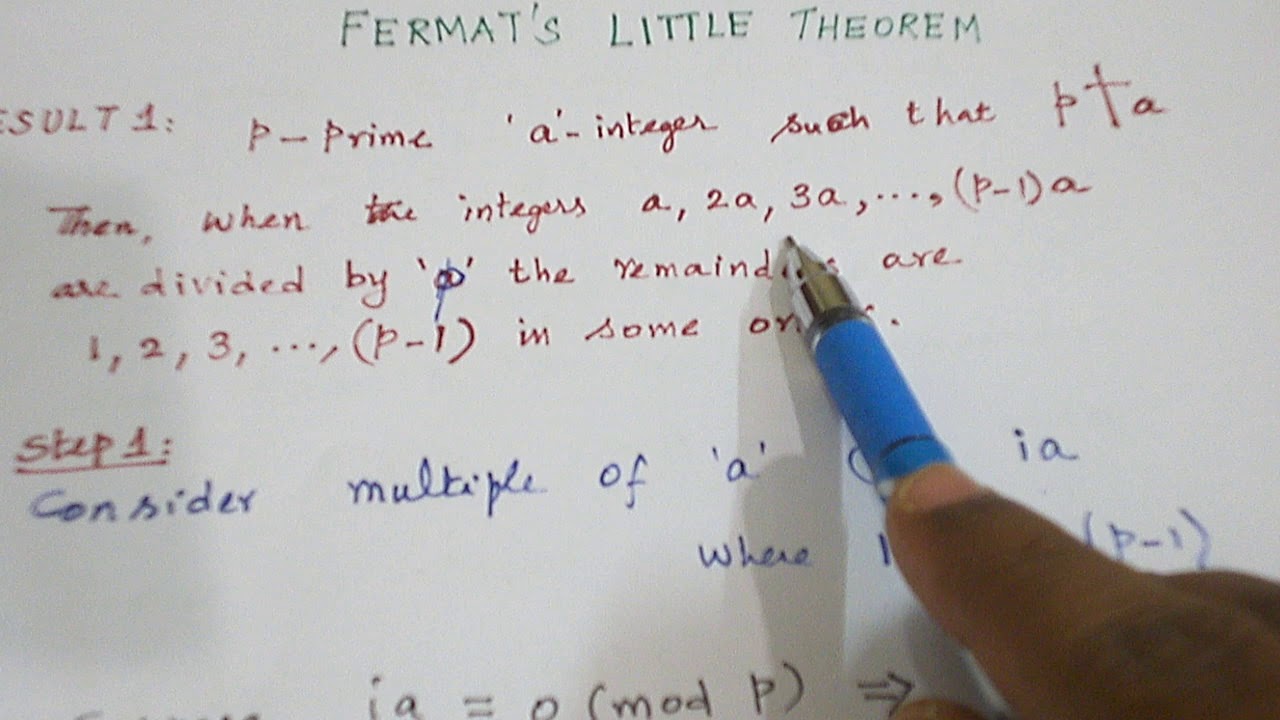 FERMAT'S LITTLE THEOREM
ESULT 1: p - prime 'a' - integer such that p † a
Then, when the integers a, 2a, 3a, ..., (p-1)a
are divided by 'p' the are
1, 2, 3, ..., (p-1) in some
Step 1:
Consider multiple of 'a' ia
where 1 (p-1)
ia = 0 (mod p) ⇒